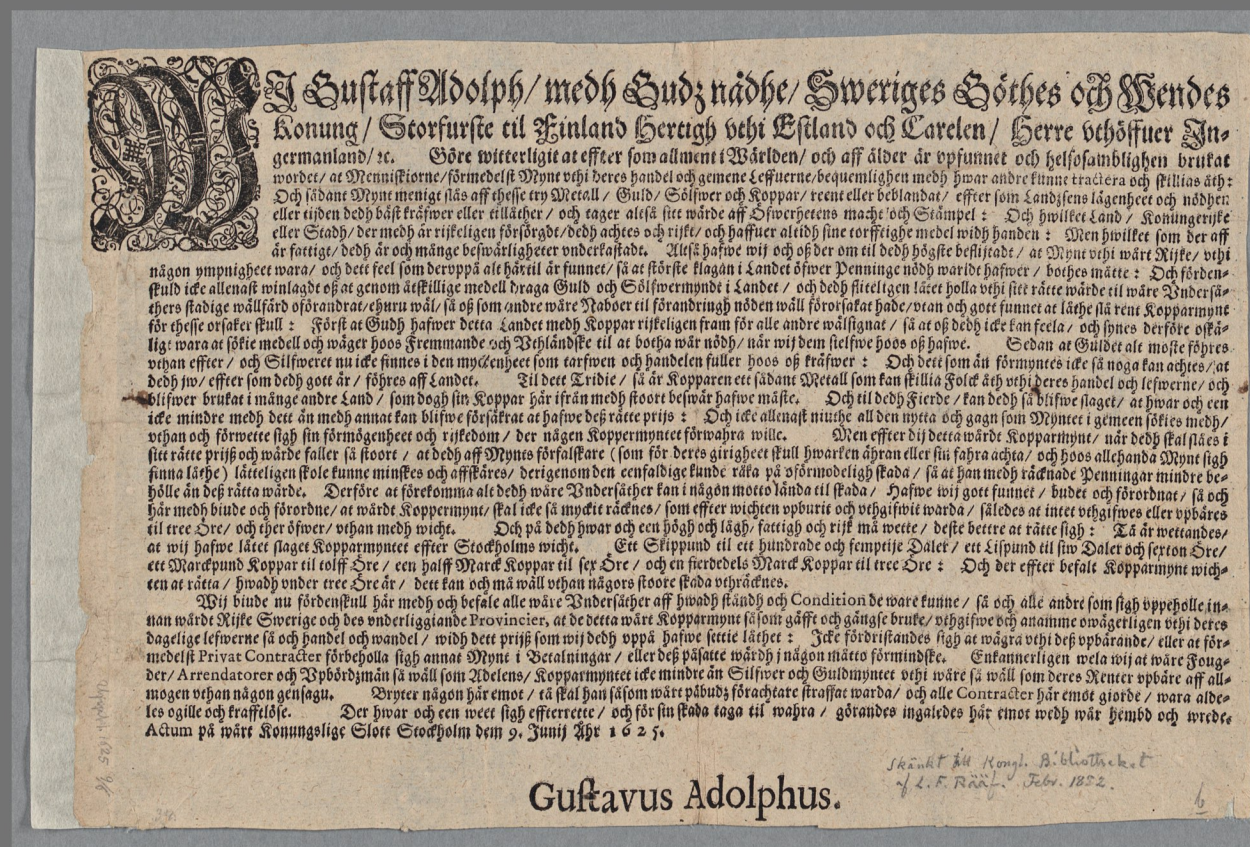 WJ Gustaff Adolph/ medh Gudz nådhe/ Sweriges Göthes och Wendes
Konung/ Storfurste til Finland Hertigh vthi Estland och Carelen/ Herre vthöffuer In-
germanland/ ꝛc. Göre witterligit at effter som allment i Wärlden/ och aff ålder är vpfunnet och helsosamblighen brukat
wordet/ at Menniskiorne/ förmedelst Mynt vthi deres handel och gemene Leffuerne/ bequemlighen medh hwar andre kunne tractera och skillias åth:
Och sådant Mynt menige slås aff thesse try Metall/ Guld/ Sölfwer och Koppar/ reent eller beblandat/ effter som Landzsens lägenheet och nödhen
eller tijden dedh bäst kräfwer eller tillåther/ och tager altså sitt wärde aff Öfwerhetens macht och Stämpel: Och hwilket Land/ Konungerijke
eller Stadh/ der medh är rijkeligen försörgdt/ dedh achtes och rijkt/ och haffuer altidh sine torfftighe medel widh handen: Men hwilket som der aff
är fattigt/ dedh är och månge beswärligheter vnderkastadt. Altså hafwe wij och oß der om til dedh högste beflijtadt/ at Mynt vthi wårt Rijke/ vthi
någon ympnigheet wara/ och dett feel som dervppå alt härtil är funnet/ så at störste klagan i Landet öfwer Penninge nödh warldt hafwer/ bothes måtte: Och förden-
skuld icke allenast winlagdt oß at genom åtskillige medell draga Guld och Sölfwermyndt i Landet/ och dedh fliteligen låtet holla vthi sitt rätte wärde til wåre Vnderså-
thers stadige wällfärd oförandrat/ ehuru wäl/ så oß som andre wåre Naboer til förandringh nöden wäll förorsakat hade/ vtan och gott funnet at låthe slå rent Kopparmynt
för thesse orsaker skull: Först at Gudh hafwer detta Landet medh Koppar rijkeligen fram för alle andre wälsignat/ så at oß dedh icke kan feela/ och synes derföre oskä-
ligt wara at sökie medell och wäger hoos Fremmande och Vthländske til at botha wår nödh/ när wij dem sielfwe hoos oß hafwe. Sedan at Guldet alt moste föhres
vthan effter/ och Silfweret nu icke finnes i den myckenheet som tarfwen och handelen fuller hoos oß kräfwer: Och dett som än förmyntes icke så noga kan achtes/ at
dedh jw/ effter som dedh gott är/ föhres aff Landet. Til dett Tridie/ så är Kopparen ett sådant Metall som kan skillia Folck åth vthi deres handel och lefwerne/ och
blifwer brukat i månge andre Land/ som dogh sin Koppar här ifrån medh stoort beswär hafwe måste. Och til dedh Fierde/ kan dedh så blifwe slaget/ at hwar och een
icke mindre medh dett än medh annat kan blifwe försäkrat at hafwe deß rätte prijs: Och icke allenast niuthe all den nytta och gagn som Myntet i gemeen sökies medh/
vthan och förwette sigh sin förmögenheet och rijkedom/ der någen Koppermyntet förwahra wille. Men effter dij detta wårdt Kopparmynt/ när dedh skal slåes i
sitt rätte prijß och wärde faller så stoort/ at dedh aff Mynts förfalskare (som för deres girigheet skull hwarken ähran eller sin fahra achta/ och hoos allehanda Mynt sigh
finna låthe) lätteligen skole kunne minskes och affskäres/ derigenom den eenfaldige kunde råka på oförmodeligh skada/ så at han medh räcknade Penningar mindre be-
hölle än deß rätta wärde. Derföre at förekomma alt dedh wåre Vndersåther kan i någon motto lända til skada/ Hafwe wij gott funnet/ budet och förordnat/ så och
här medh biude och förordne/ at wårdt Koppermynt/ skal icke så myckit räcknes/ som effter wichten vpburit och vthgifwit warda/ således at intet vthgifwes eller vpbäres
til tree Öre/ och ther öfwer/ vthan medh wicht. Och på dedh hwar och een högh och lågh/ fattigh och rijk må wette/ deste bettre at rätte sigh: Tå är wettandes/
at wij hafwe låtet slaget Kopparmyntet effter Stockholms wicht. Ett Skippund til ett hundrade och femptije Daler/ ett Lispund til siw Daler och sexton Öre/
ett Marckpund Koppar til tolff Öre/ een halff Marck Koppar til sex Öre/ och en fierdedels Marck Koppar til tree Öre: Och der effter befalt Kopparmynt wich-
ten at rätta/ hwadh vnder tree Öre är/ dett kan och må wäll vthan någors stoore skada vthräcknes.
Wij biude nu fördenskull här medh och befale alle wåre Vndersåther aff hwadh ståndh och Condition de ware kunne/ så och alle andre som sigh vppeholle in-
nan wårdt Rijke Swerige och des vnderliggiande Provincier, at de detta wårt Kopparmynt såsom gäfft och gängse bruke/ vthgifwe och anamme owägerligen vthi deres
dagelige lefwerne så och handel och wandel/ widh dett prijß som wij dedh vppå hafwe settie låthet: Icke fördristandes sigh at wägra vthi deß vpbärande/ eller at för-
medelst Privat Contracter förbeholla sigh annat Mynt i Betalningar/ eller deß påsatte wärdh j någon mätto förmindske. Enkannerligen wela wij at wåre Foug-
der/ Arrendatorer och Vpbördzmän så wäll som Adelens/ Kopparmyntet icke mindre än Silfwer och Guldmyntet vthi wåre så wäll som deres Renter vpbäre aff all-
mogen vthan någon gensagu. Bryter någon här emot/ tå skal han såsom wårt påbudz förachtare straffat warda/ och alle Contracter här emot giorde/ wara alde-
les ogille och krafftlöse. Der hwar och een weet sigh effterrette/ och för sin skada taga til wahra/ görandes ingaledes här emot wedh wår hembd och wrede.
Actum på wårt Konungslige Slott Stockholm dem 9. Junij Åhr 1625.
Skänkt till Kongl. Bibliotheket
af L. F. Rääf. Febr. 1852.
Gustavus Adolphus.